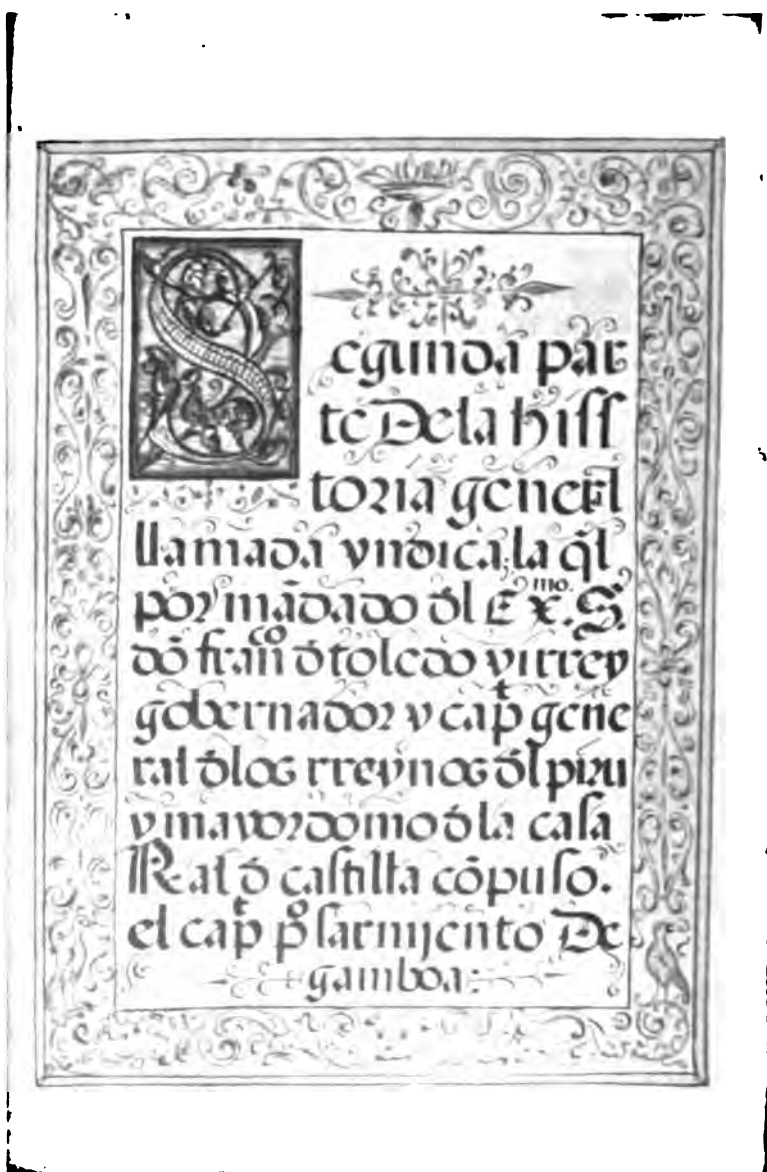 Segunda par
te De la hiss
toria generl
llamada yndica, la ql̃
por mãdado dl Exmo. S.
dõ franco d toledo virrey
gobernador y capt gene
ral dlos rreynos dl piru
y mayordomo dla casa
Real d castilla cõpuso.
el capt po sarmiento De
gamboa: